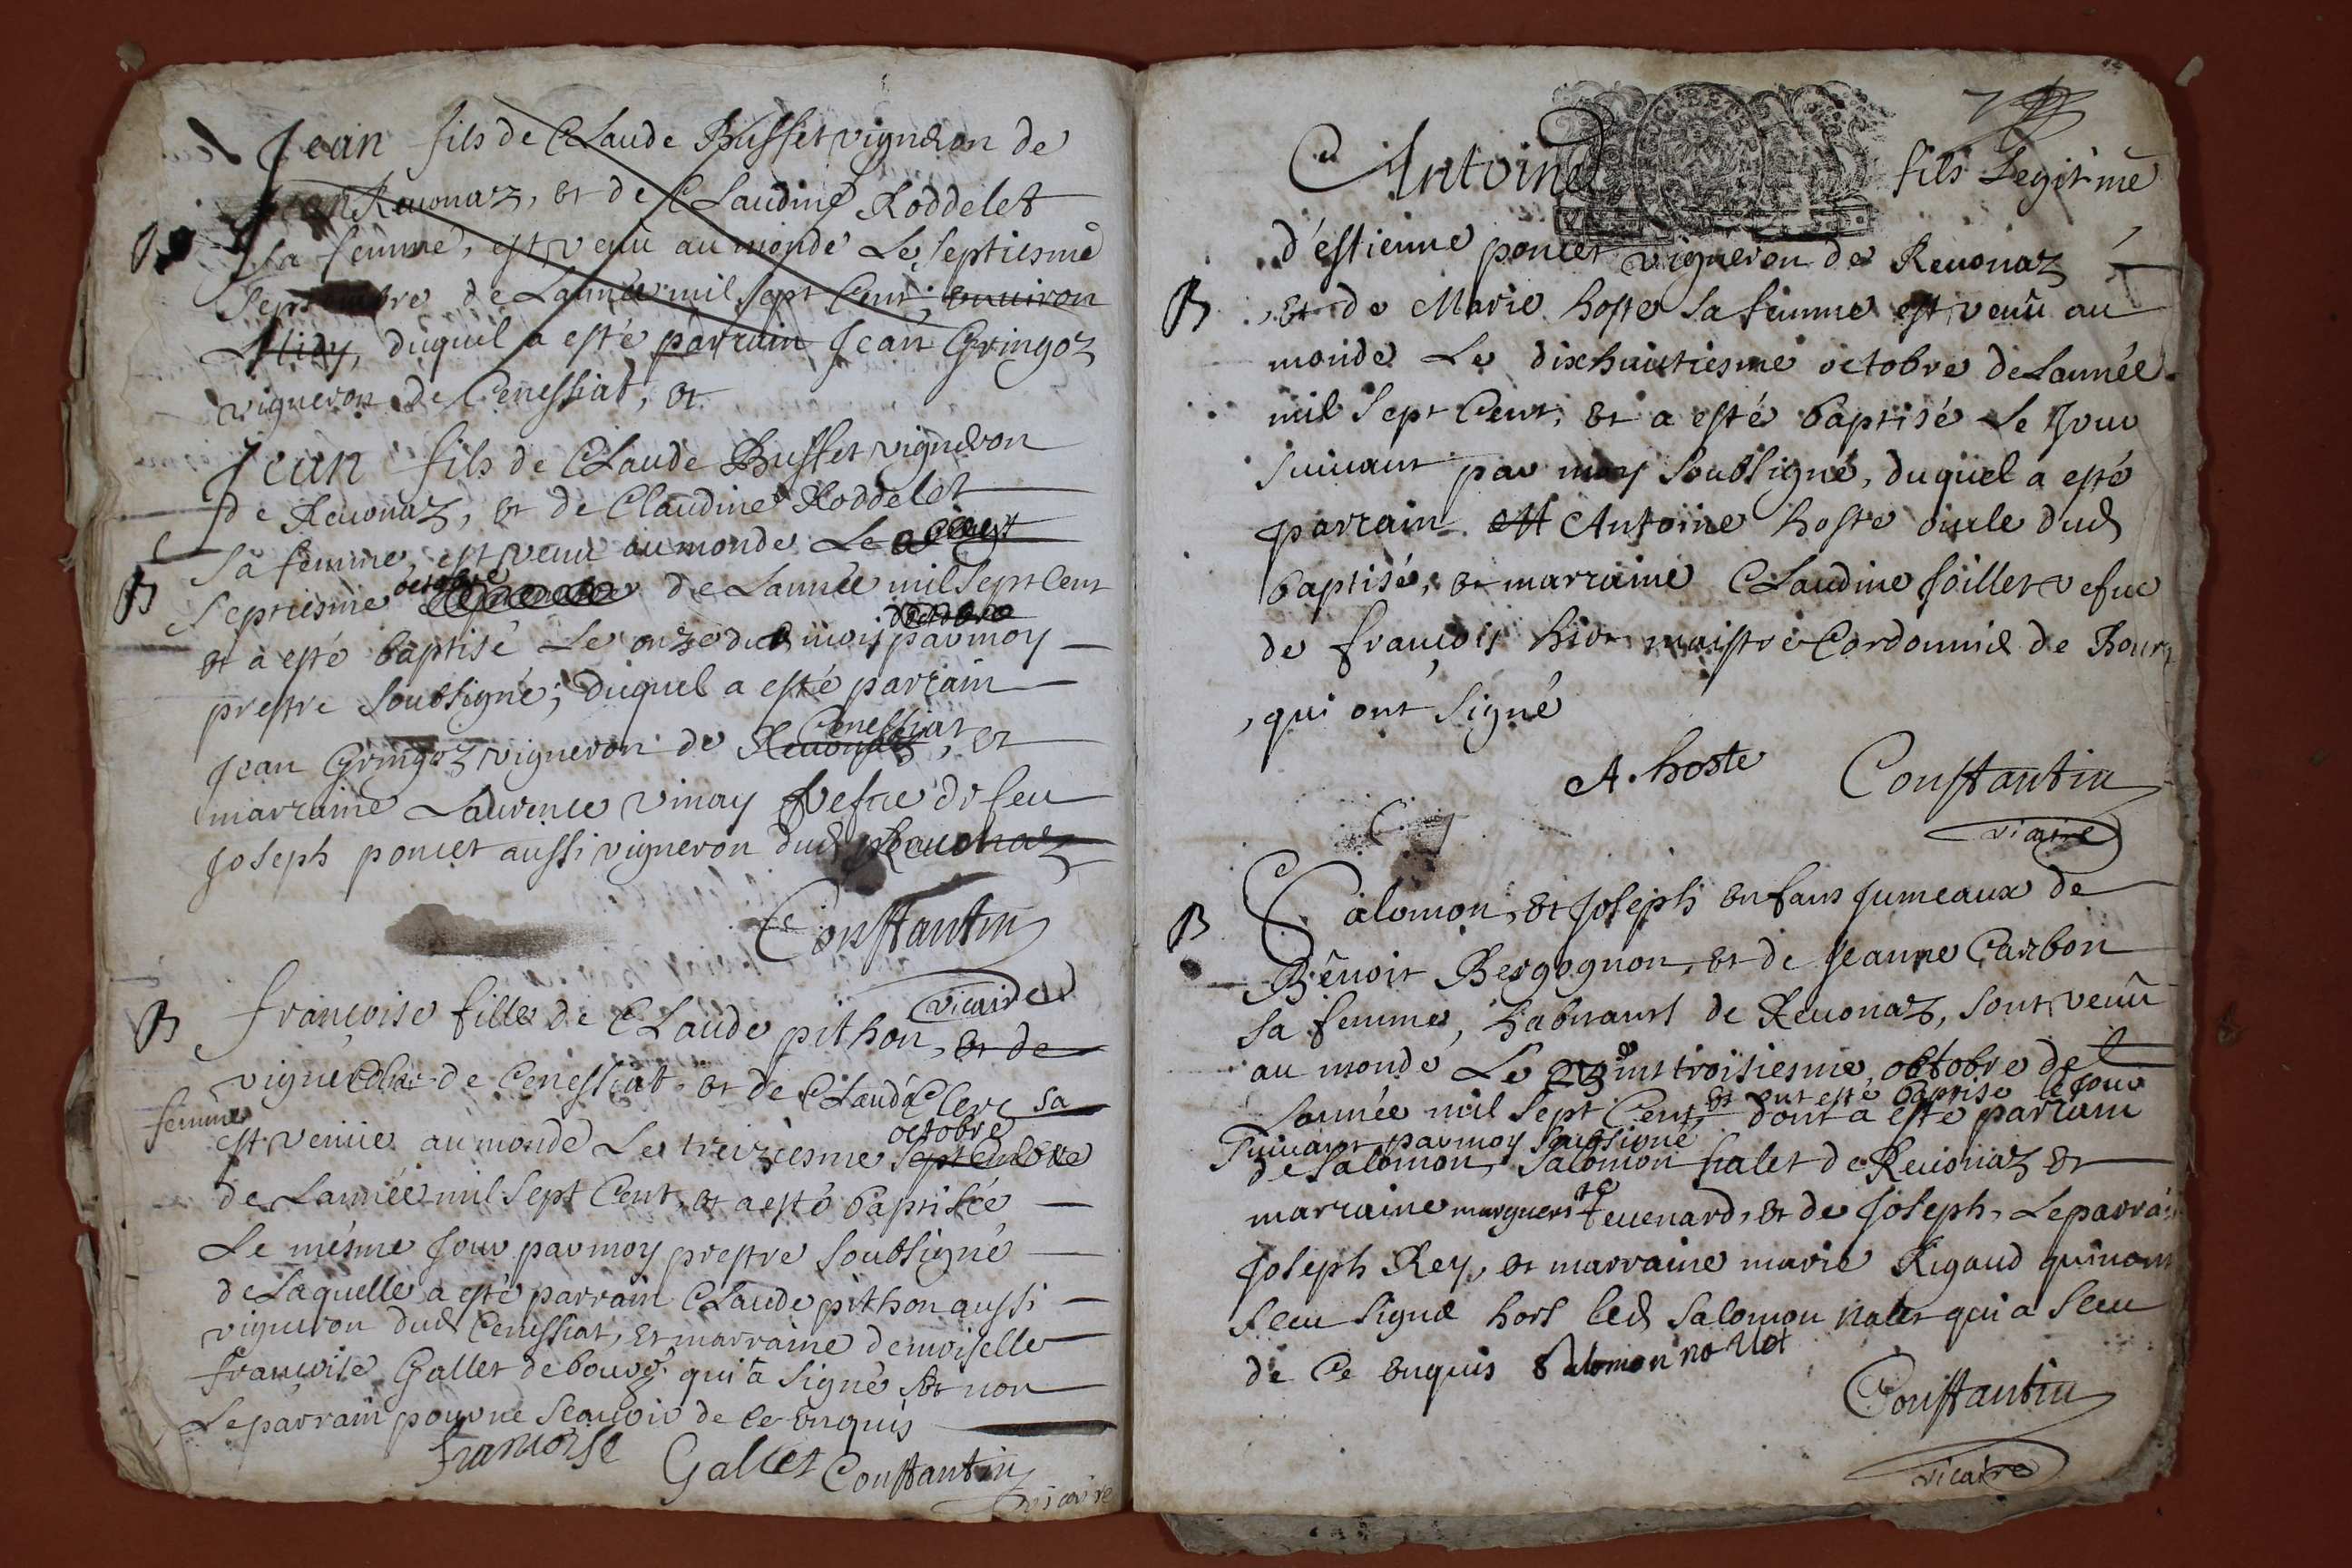 Jean fils de Claude Busset vigneron de
Jean Reuonaz, et de Claudine Roddelet
sa femme, est venu au monde Le septiesme
Septembre de Lannée mil sept Cent, enuiron
Midy, duquel a esté parrain Jean Gringoz
vigneron de Cenessiat, et
Jean fils de Claude Busset vigneron
de Reuonaz, et de Claudine Roddelet
B
sa femme, est venu au monde Le
septiesme octobre de Lannée mil sept Cent
octobre
et a esté baptisé Le onze dud mois par moy
prestre soubsigné; duquel a esté parrain
Cenessiat
Jean Gringoz vigneron de Reuonaz, et
marraine Laurence vinay vefue de feu
Joseph poncet aussi vigneron dud Reuonaz
Constantin
vicaire
B
françoise fille de Claude pithon, et de
vigneron de Cenessiat et de Clauda Clerc sa
femme
octobre
est venue au monde Le treiziesme septembre
de Lannée mil sept Cent, et a esté baptisée
Le mesme Jour par moy prestre soubsigné
de Laquelle a esté parrain Claude pithon aussi
vigneron dud Cenessiat, et marraine demoiselle
françoise Gallet de bourg qui a signé et non
Le parrain pour ne scauoir de ce enquis
francoise Gallet Constantin
vicaire
Antoine fils Legitime
d'estienne poncet vigneron de Reuonaz
B
et de Marie hoste sa femme est venu au
monde Le dixhuictiesme octobre de Lannée
mil sept Cent, et a esté baptisé Le Jour
suiuant par moy soubsigné, duquel a esté
parrain est Antoine hoste oncle dud
baptisé, et marraine Claudine Joillet vefue
de françois maistre Cordonnie de Bourg
, qui ont signé
A. hoste Constantin
vicaire
B
Salomon, et Joseph enfans Jumeaux de
Benoit Bergognon, et de Jeanne Carbon
sa femme, habitants de Reuonaz, sont venu
au monde Le vingt troisiesme octobre de
et ont esté baptise le Jour
Lannée mil sept Cent, dont a esté parrain
suiuant par moy soubsigné
de Salomon, Salomon nalet de Reuonaz et
marraine marguerite teuenard, et de Joseph, Le parrain
Joseph Rey, et marraine marie Rigaud qui nont
sceu signe hors led Salomon nalet qui a sceu
de Ce enquis Salomon nallet
Constantin
vicaire